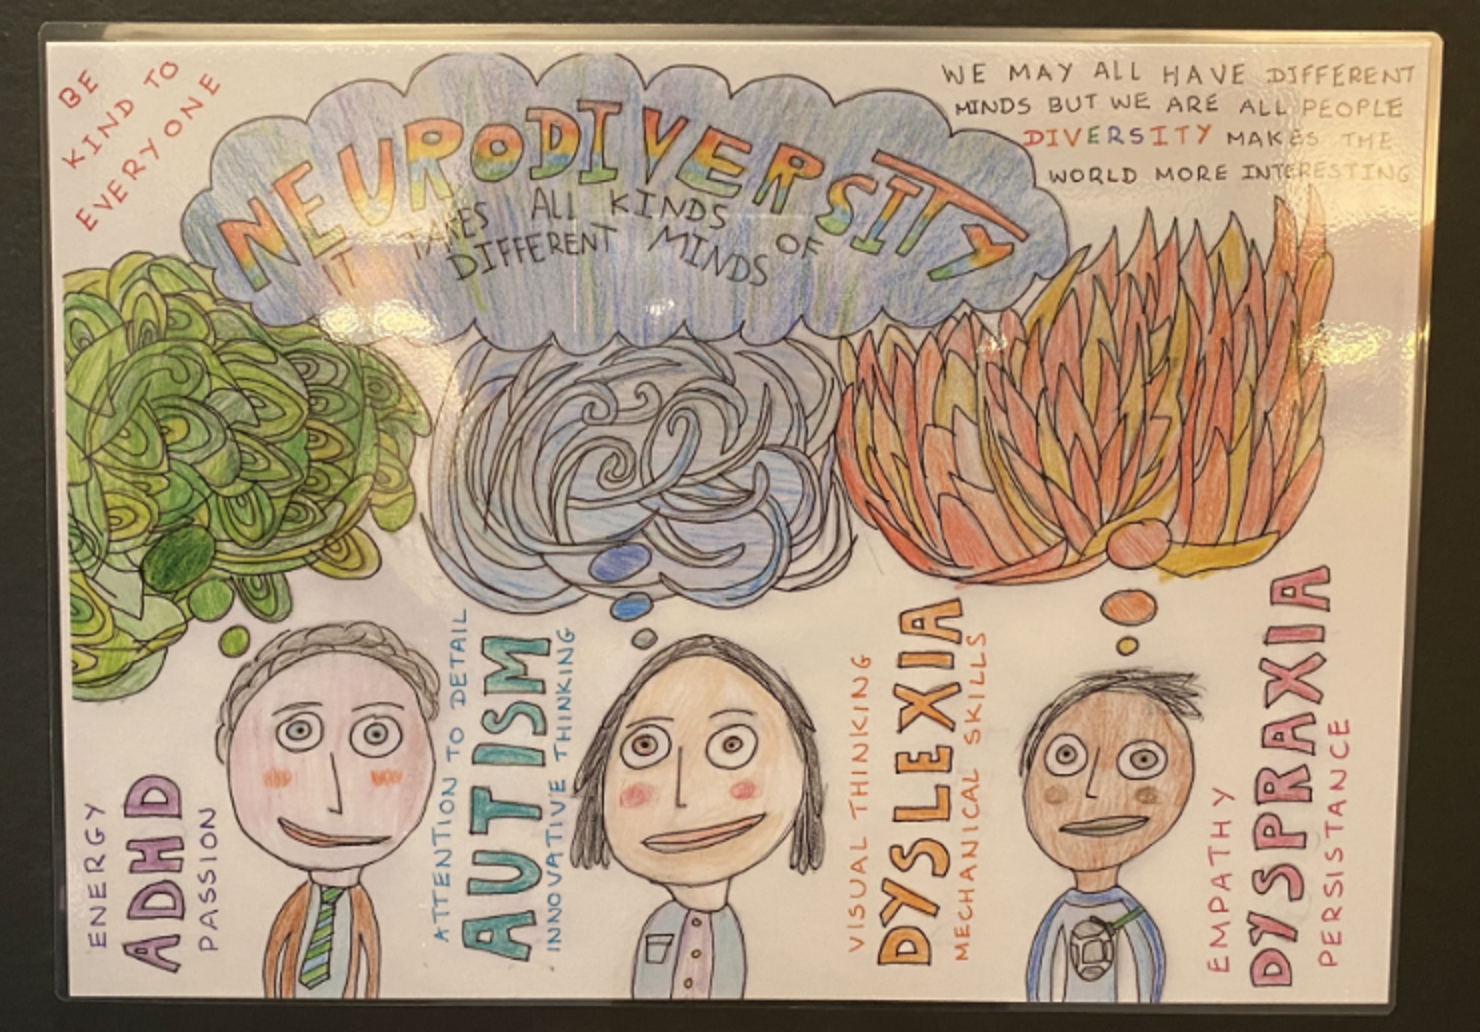 BE
KIND TO
EVERY ONE
NEURODIVERSITY
IT TAKES ALL KINDS OF
DIFFERENT MINDS
WE MAY ALL HAVE DIFFERENT
MINDS BUT WE ARE ALL PEOPLE
DIVERSITY MAKES THE
WORLD MORE INTERESTING
ENERGY
ADHD
PASSION
ATTENTION TO DETAIL
AUTISM
INNOVATIVE THINKING
VISUAL THINKING
DYSLEXIA
MECHANICAL SKILLS
EMPATHY
DYSPRAXIA
PERSISTANCE